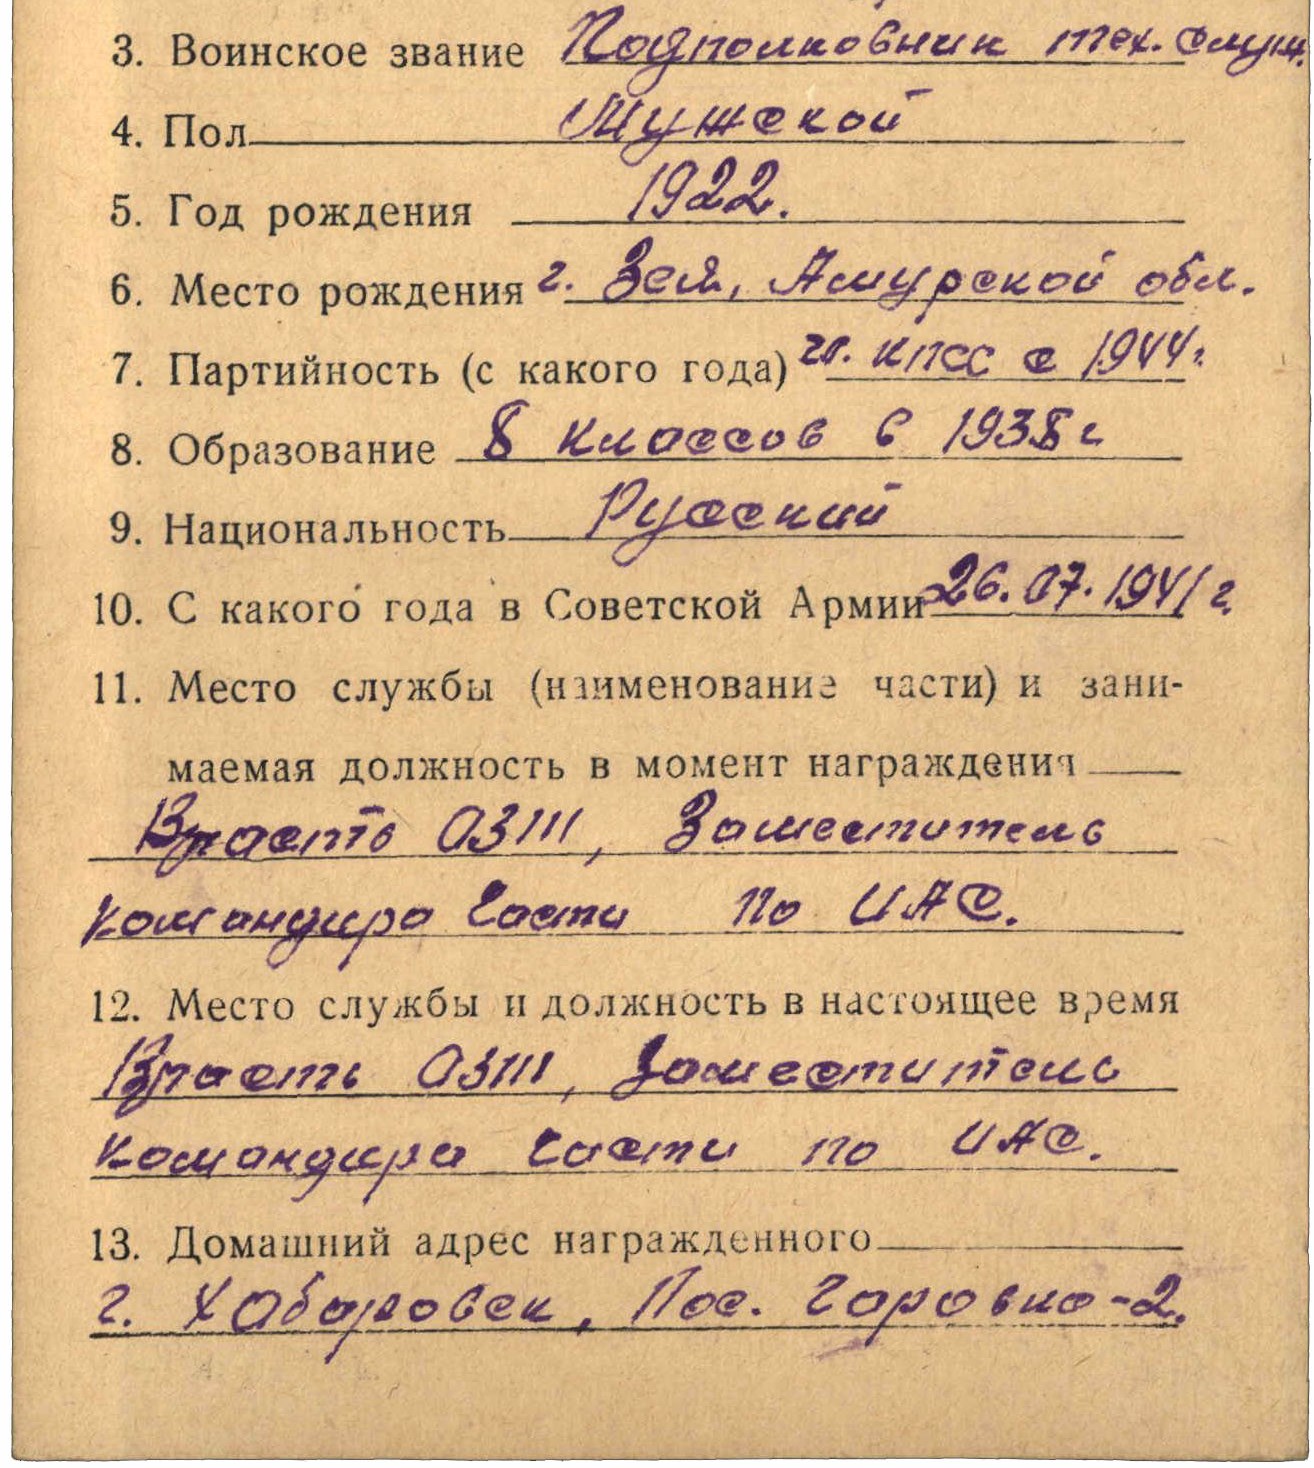 3. Воинское звание Подполковник тех. служ.
4. Пол Мужской
5. Год рождения 1922.
6. Место рождения г. Зея, Амурской обл.
7. Партийность (с какого года) чл. КПСС с 1944 г.
8. Образование 8 классов в 1938 г
9. Национальность Русский
10. С какого года в Советской Армии 26.07.1941 г.
11. Место службы (наименование части) и зани-
маемая должность в момент награждения
В/часть 03111, Заместитель
командира части по ИАС.
12. Место службы и должность в настоящее время
В/часть 03111, Заместитель
командира части по ИАС.
13. Домашний адрес награжденного
г. Хабаровск, Пос. Гаровка-2.